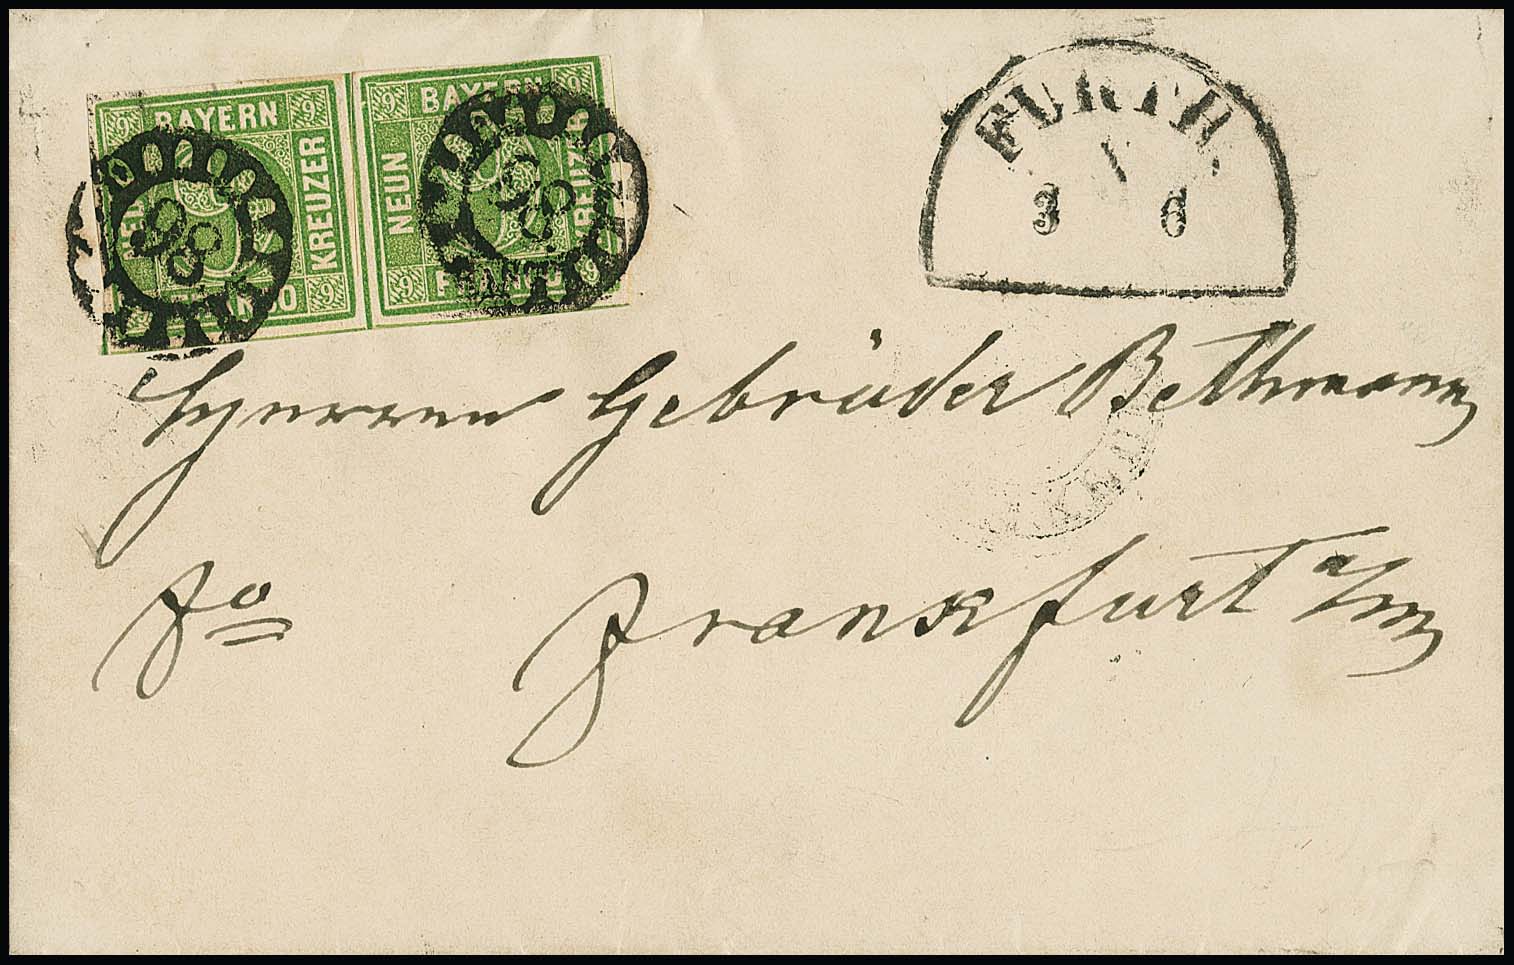 BAYERN BAYERN
KREUZER NEUN KREUZER
FRANCO FRANCO
9 9 9 9 9 9
98 98
FURTH.
3 6
Herren Gebrüder Bethmann
fo Frankfurt a/m